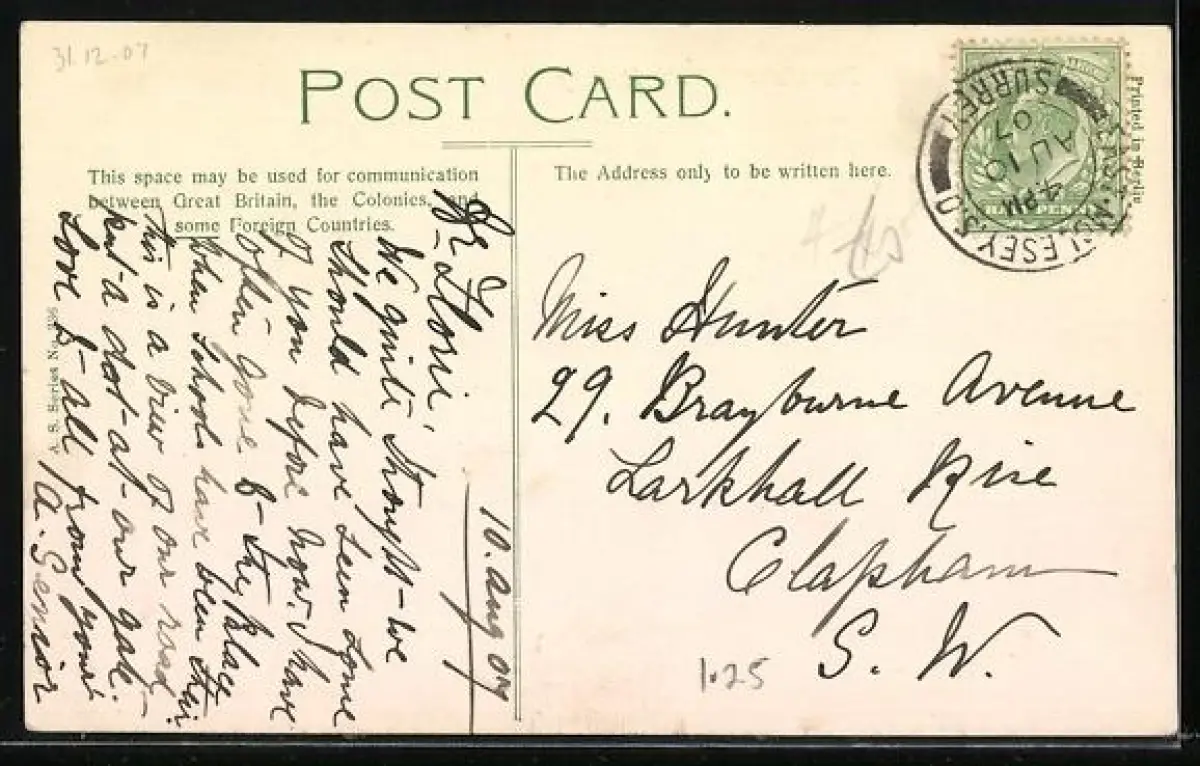 31.12.07
POST CARD.
This space may be used for communication
between Great Britain, the Colonies, and
some Foreign Countries.
The Address only to be written here.
Printed in Berlin
EAST MOLESEY S.O.
SURREY
4 PM
AU 10
07
HALFPENNY
A. S. Series No.
10. Aug 07
Dr Florrie,
We quite thought we
should have seen some
of you before now. I have
often gone to the place
when Schools have been their
This is a view of our road
put a dot at our gate.
Love to all from yours
A. Senior
Miss Hunter
29. Brayburne Avenue
Larkhall Rise
Clapham
S. W.
1.25